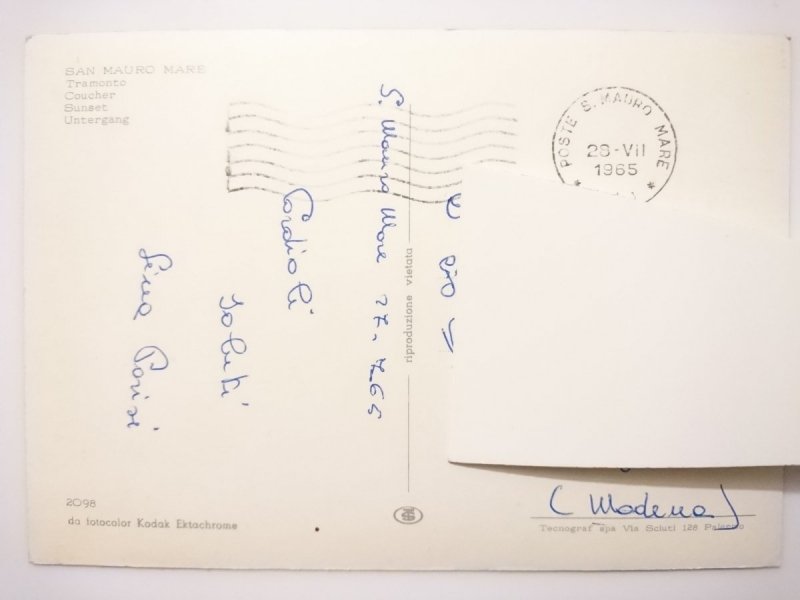 SAN MAURO MARE
Tramonto
Coucher
Sunset
Untergang
POSTE S. MAURO MARE
28-VII
1965
S. Mauro Mare 27.7.65
Cordiali
Saluti
Parisi
riproduzione vietata
(Modena)
2098
da fotocolor Kodak Ektachrome
Tecnograf spa Via Sciuti 128 Palermo